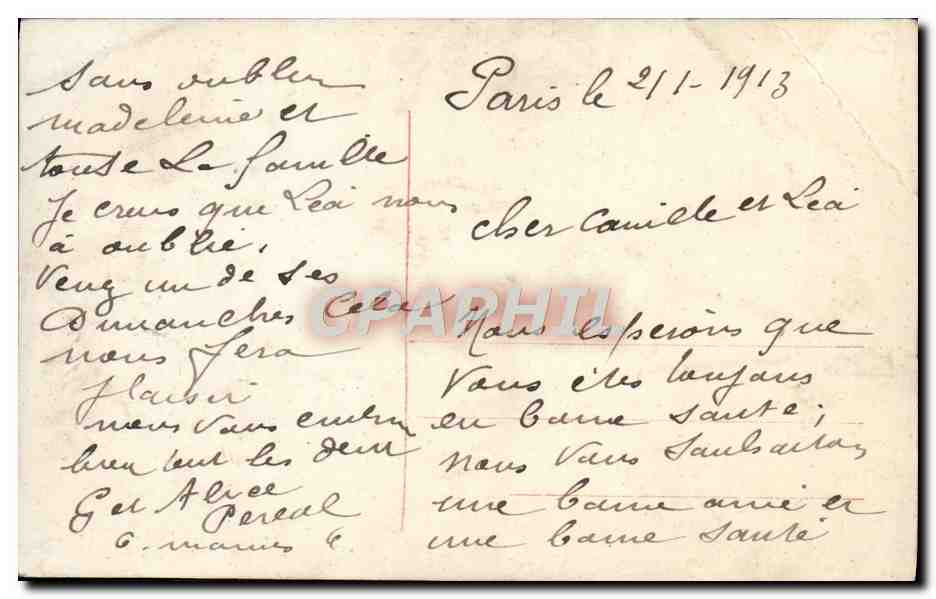 Paris le 2/1-1913
cher Camille et Léa
Nous esperons que
vous êtes toujours
en bonne santé,
nous vous souhaitons
une bonne anné et
une bonne santé
sans oublier
madeleine et
toute la famille
Je creus que Léa nous
à oublié.
venez un de ses
Dimanches cela
nous fera
plaisir
nous vous embr
bien tout les deux
G et Alice
CPAPHIL